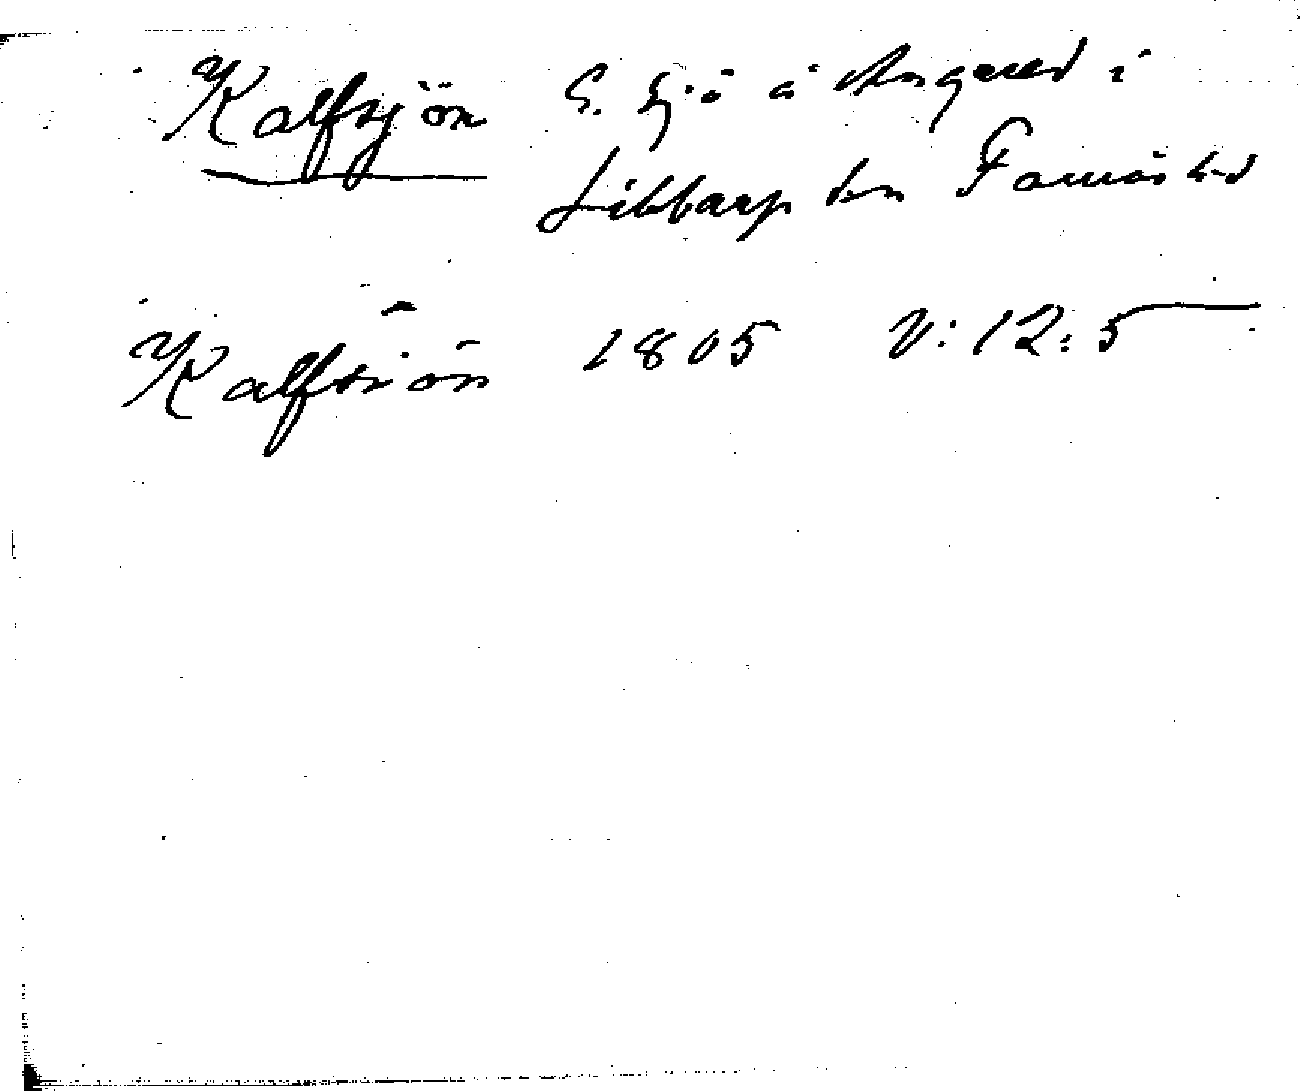 Kalfsjön S. Sjö å Angered i
Libbarp sn Famås hd
Kalfsiön 1805 V:12:5